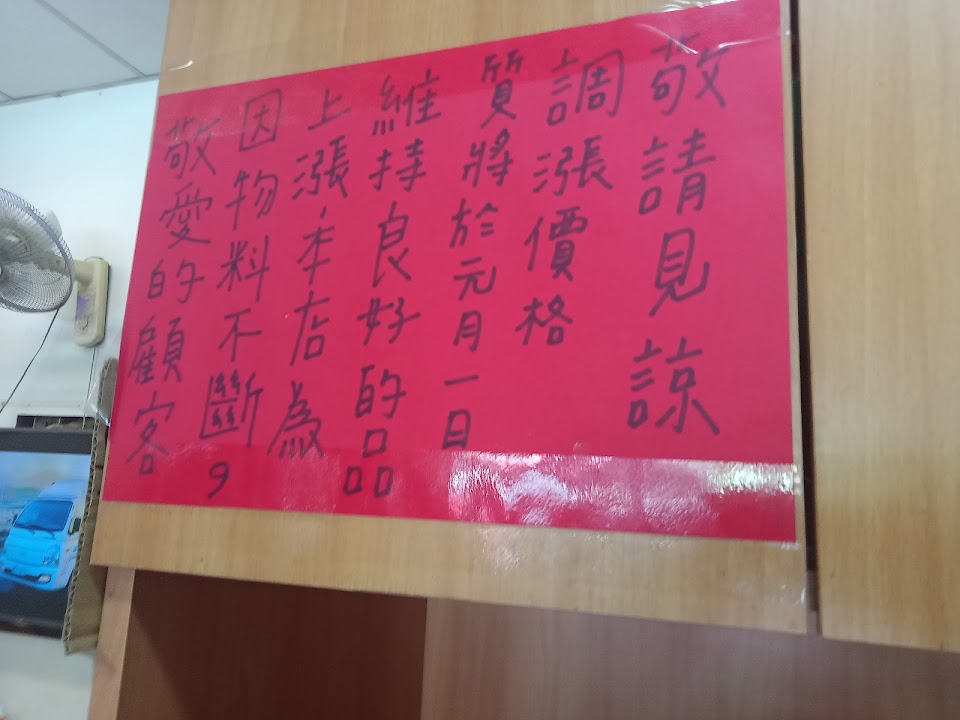 敬愛的顧客
因物料不斷，
上漲本店為
維持良好的品
質將於元月一日
調漲價格
敬請見諒